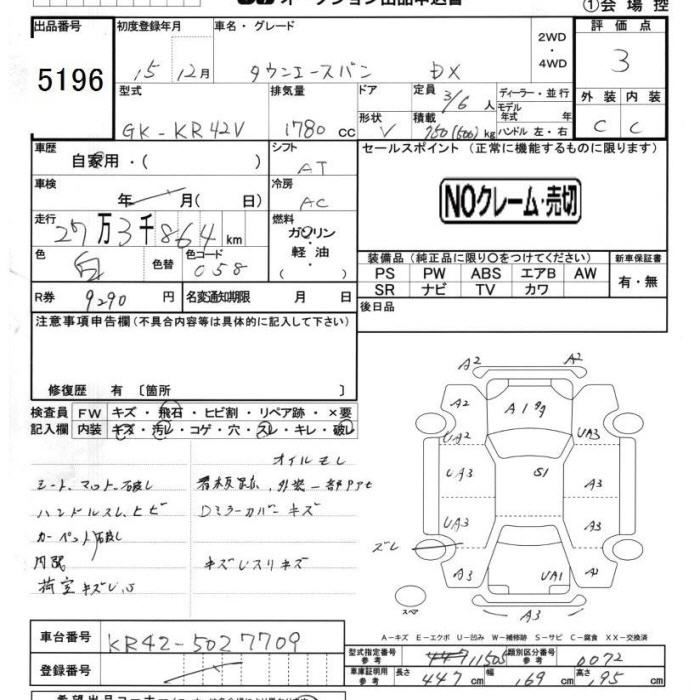 オークション出品申込書
①会場控
出品番号 初度登録年月 車名・グレード 2WD・4WD 評価点
5196 15 12月 タウンエースバン DX 3
型式 排気量 ドア 定員 3/6 人 ディーラー・並行 外装 内装
モデル年式 年
GK-KR42V 1780 cc 形状 V 積載 750(500) kg ハンドル 左・右 C C
車歴 自家用・( ) シフト AT セールスポイント (正常に機能するものに限ります)
車検 年 月( 日) 冷房 AC
NOクレーム・売切
走行 27万3千864 km 燃料 ガソリン・軽油・( )
色 白 色替 色コード 058
装備品 (純正品に限り○をつけてください) 新車保証書
PS PW ABS エアB AW 有・無
SR ナビ TV カワ
R券 9290 円 名変通知期限 月 日 後日品
注意事項申告欄 (不具合内容等は具体的に記入して下さい)
修復歴 有 〔箇所 〕
検査員 FW キズ・飛石・ヒビ割・リペア跡・×要
記入欄 内装 キズ・汚レ・コゲ・穴・スレ・キレ・破レ
オイルモレ
シート、マット破レ
ハンドルスレ、ヒビ Dミラーカバーキズ
カーペット破レ
荷室キズ
A2 A2
A2 A1
UA2 UA3
UA3 S1 A3
UA3 A3
ズレ
A3 UA1 A2
スペア A3
A-キズ E-エクボ U-凹み W-補修跡 S-サビ C-腐食 XX-交換済
車台番号 KR42-5027709
型式指定番号 参考 11505 類別区分番号 参考 0072
登録番号
車庫証明用 参考 長さ 447 cm 幅 169 cm 高さ 195 cm